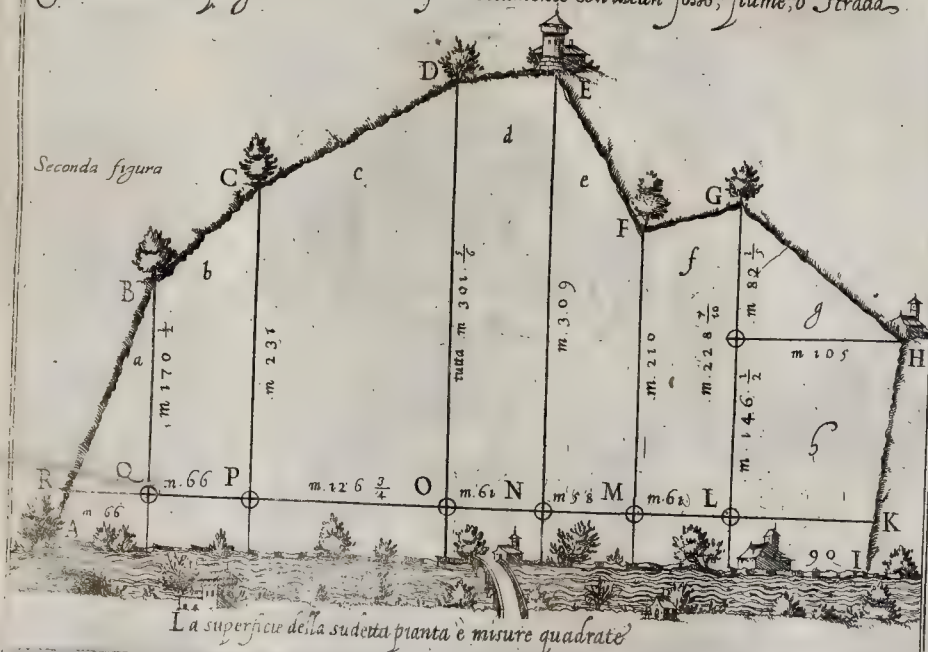 fosso, fiume, o Strada
D
E
Seconda figura
C
c
d
e
G
b
F
f
B
g
a
m 170 ½
m 231
tutta m 301. 5/6
m. 309
m. 210
m. 228 7/10
m 82 1/5
m 105
H
m. 146. ½
h
R
Q
m. 66
P
m. 126 ¾
O
m. 61
N
m 58
M
m. 61
L
K
m 66
A
90
I
La superficie della sudetta pianta è misure quadrate